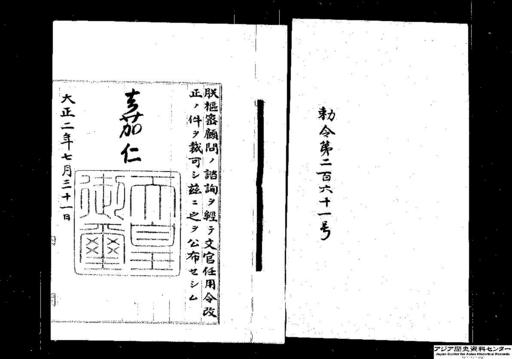 勅令第二百六十一号
朕樞密顧問ノ諮詢ヲ經テ文官任用令改
正ノ件ヲ裁可シ玆ニ之ヲ公布セシム
嘉仁
天皇御璽
大正二年七月三十一日
アジア歴史資料センター
Japan Center for Asian Historical Records